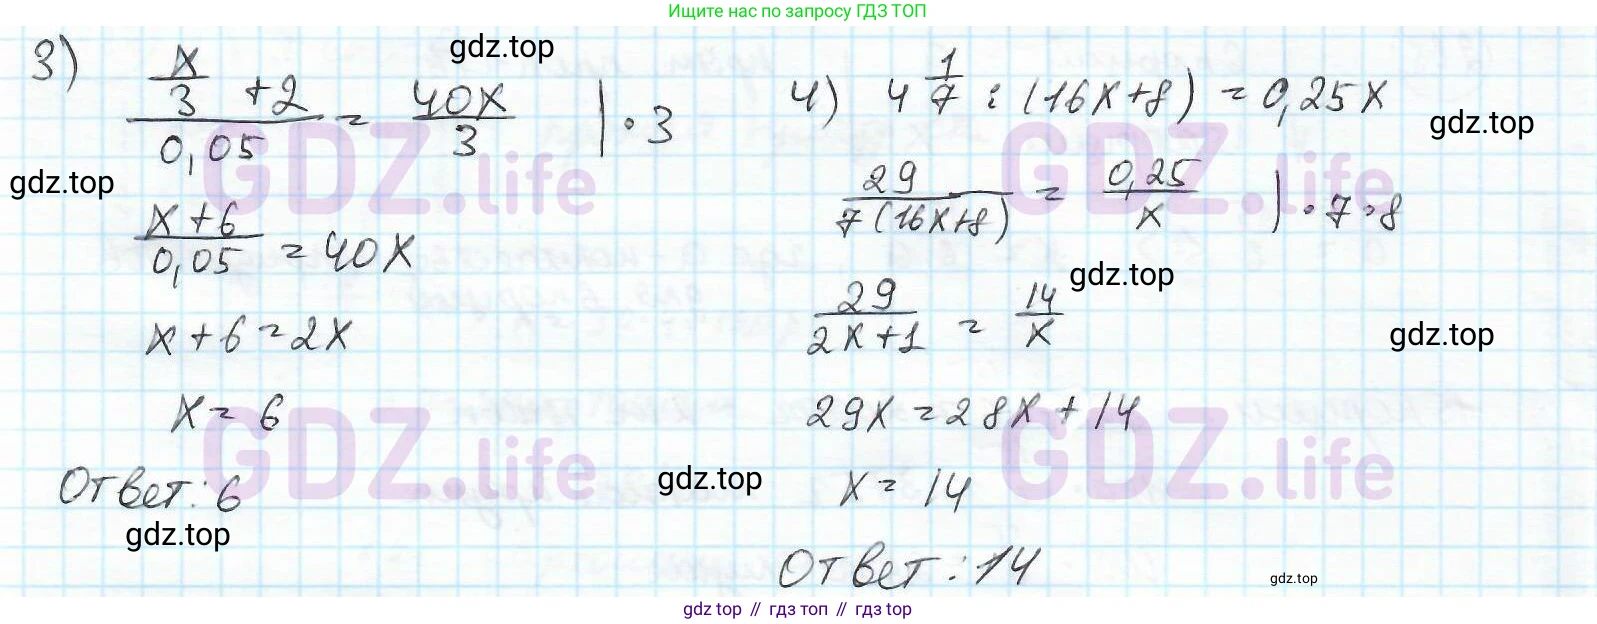 Ищите нас по запросу ГДЗ ТОП
3) (x/3 + 2)/0,05 = 40x/3 | · 3
gdz.top
gdz.top
GDZ.life
(x + 6)/0,05 = 40x
x + 6 = 2x
x = 6
GDZ.life
Ответ: 6
gdz.top
4) 4 1/7 : (16x+8) = 0,25x
gdz.top
GDZ.life
29/(7(16x+8)) = 0,25/x | · 7 · 8
gdz.top
29/(2x+1) = 14/x
gdz.top
29x = 28x + 14
GDZ.life
gdz.top
x = 14
Ответ: 14
gdz.top
gdz top // гдз топ // гдз top